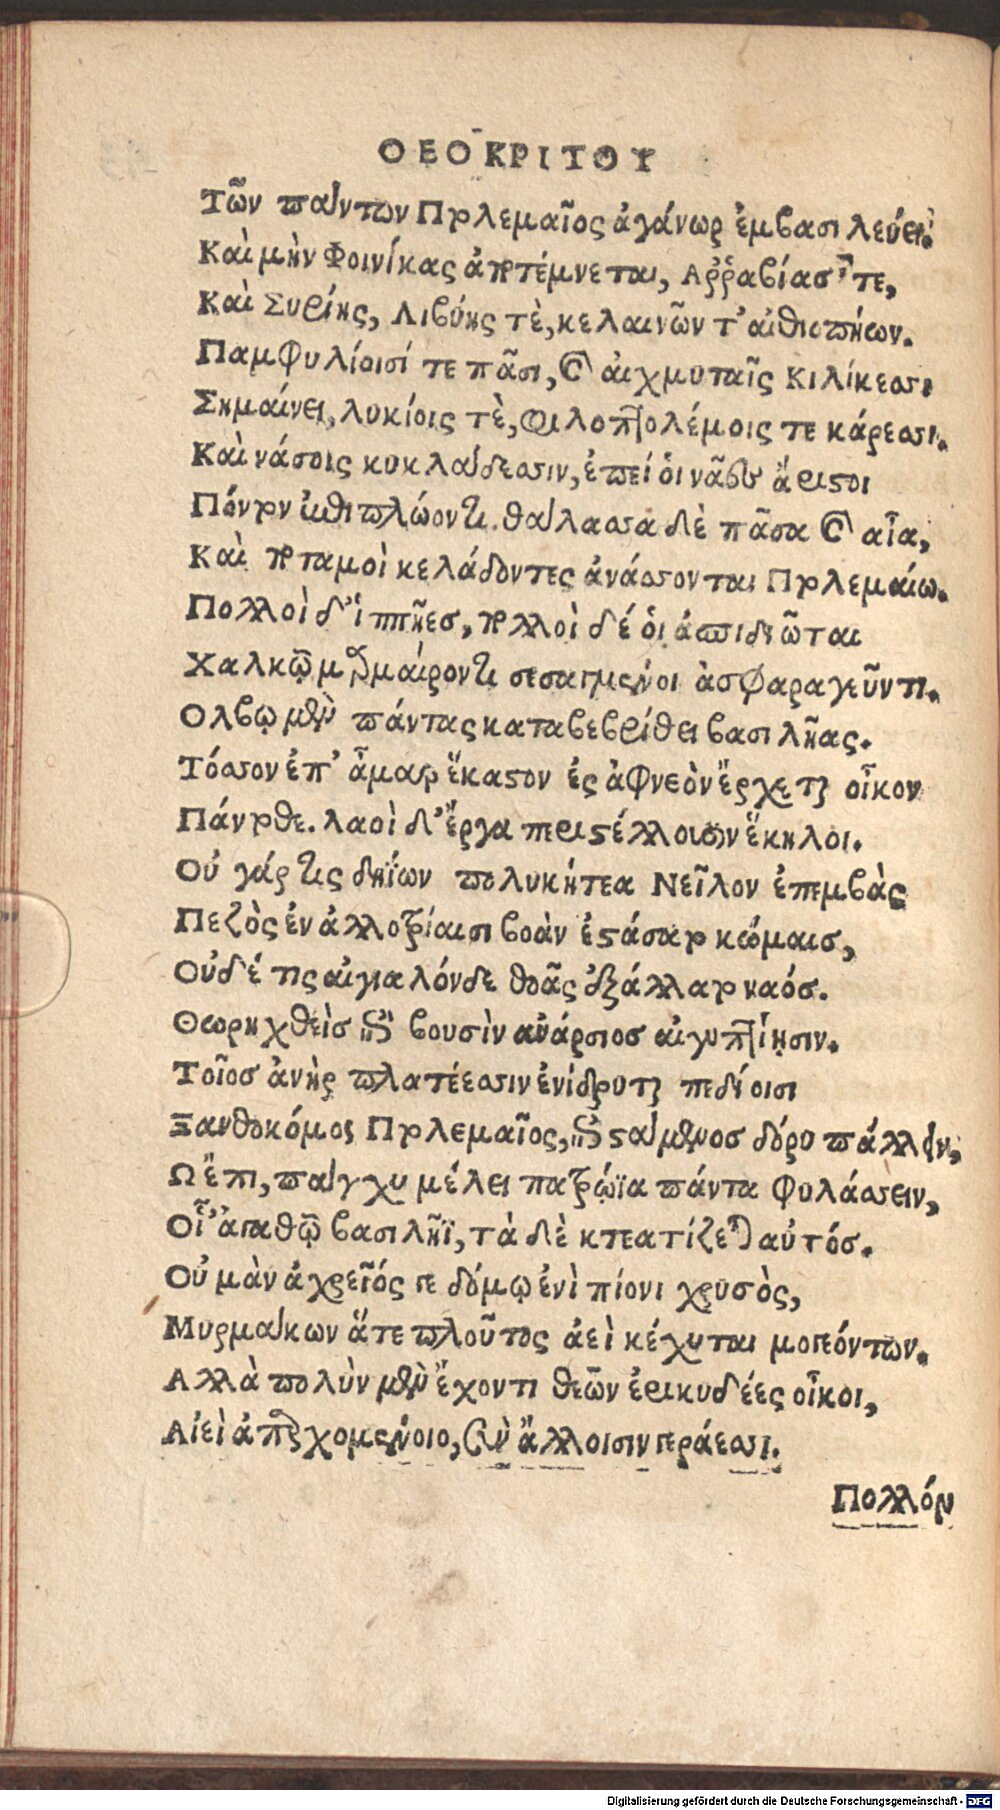 ΘΕΟΚΡΙΤΟΥ
Τῶν πάντων Πτολεμαῖος ἀγάνωρ ἐμβασιλεύει.
Καὶ μὴν Φοινίκας ἀποτέμνεται, Ἀῤῥαβίας τε,
Καὶ Συρίης, Λιβύης τὲ, κελαινῶν τ' αἰθιοπήων.
Παμφυλίοισί τε πᾶσι, καὶ αἰχμυταῖς Κιλίκεσσι
Σημαίνει, λυκίοις τὲ, φιλοπτολέμοις τε κάρεσσι.
Καὶ νάσοις κυκλάδεσσιν, ἐπεί οἱ νᾶες ἄριστοι
Πόντον ἐπιπλώοντι. θάλασσα δὲ πᾶσα καὶ αἶα,
Καὶ ποταμοὶ κελάδοντες ἀνάσσονται Πτολεμαίω.
Πολλοὶ δ' ἱππῆες, πολλοὶ δέ οἱ ἀσπιδιῶται
Χαλκῷ μαρμαίροντι σεσαγμένοι ἀσφαραγεῦντι.
Ολβῳ μὲν πάντας καταβεβρίθει βασιλῆας.
Τόσσον ἐπ' ἆμαρ ἕκαστον ἐς ἀφνεὸν ἔρχεται οἶκον
Πάντοθε. λαοὶ δ' ἔργα περιστέλλουσιν ἕκηλοι.
Οὐ γάρ τις δηΐων πολυκήτεα Νεῖλον ἐπεμβὰς
Πεζὸς ἐν ἀλλοτρίαισι βοὰν ἐστάσατο κώμαις,
Οὐδέ τις αἰγιαλόνδε θοᾶς ἐξάλλατο ναός.
Θωρηχθεὶς ἐπὶ βουσὶν ἀνάρσιος αἰγυπτίῃσιν.
Τοῖος ἀνὴρ πλατέεσσιν ἐνίδρυται πεδίοισι
Ξανθοκόμος Πτολεμαῖος, ἐπιστάμενος δόρυ πάλλην,
Ω ἔπι, πάγχυ μέλει πατρώϊα πάντα φυλάσσειν,
Οἷ' ἀγαθῷ βασιλῆϊ, τὰ δὲ κτεατίζεται αὐτός.
Οὐ μὰν ἀχρεῖός γε δόμῳ ἐνὶ πίονι χρυσὸς,
Μυρμάκων ἅτε πλοῦτος ἀεὶ κέχυται μογεόντων.
Αλλὰ πολὺν μὲν ἔχοντι θεῶν ἐρικυδέες οἶκοι,
Αἰεὶ ἀπαρχομένοιο, σὺν ἄλλοισιν γεράεσσι.
Πολλὸν
Digitalisierung gefördert durch die Deutsche Forschungsgemeinschaft - DFG